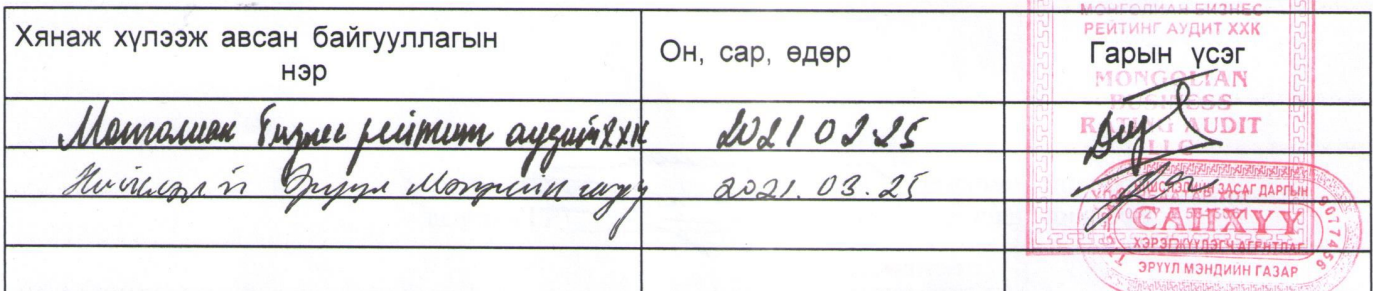 Хянаж хүлээж авсан байгууллагын нэр
Он, сар, өдөр
Гарын үсэг
Монголиан бизнес рейтинг аудит ХХК
2021 02 25
Нийслэлийн Эрүүл Мэндийн газар
2021. 03. 25
МОНГОЛИАН БИЗНЕС
РЕЙТИНГ АУДИТ ХХК
MONGOLIAN
BUSINESS
RATING AUDIT
LLC
ЗАСАГ ДАРГЫН
САНХҮҮ
ХЭРЭГЖҮҮЛЭГЧ АГЕНТЛАГ
ЭРҮҮЛ МЭНДИЙН ГАЗАР